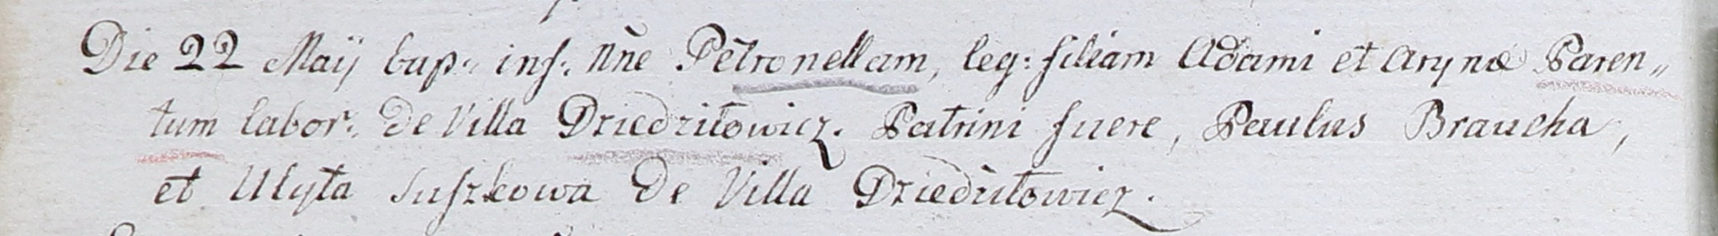 Die 22 Maÿ bap: inf: Nne Petronellam, leg: filiam Adami et Arynæ Paren„
tum labor: de Villa Dziedziłowicz. Patrini fuere, Paulus Braucha,
et Ulyta Suszkowa de Villa Dziedziłowicz.